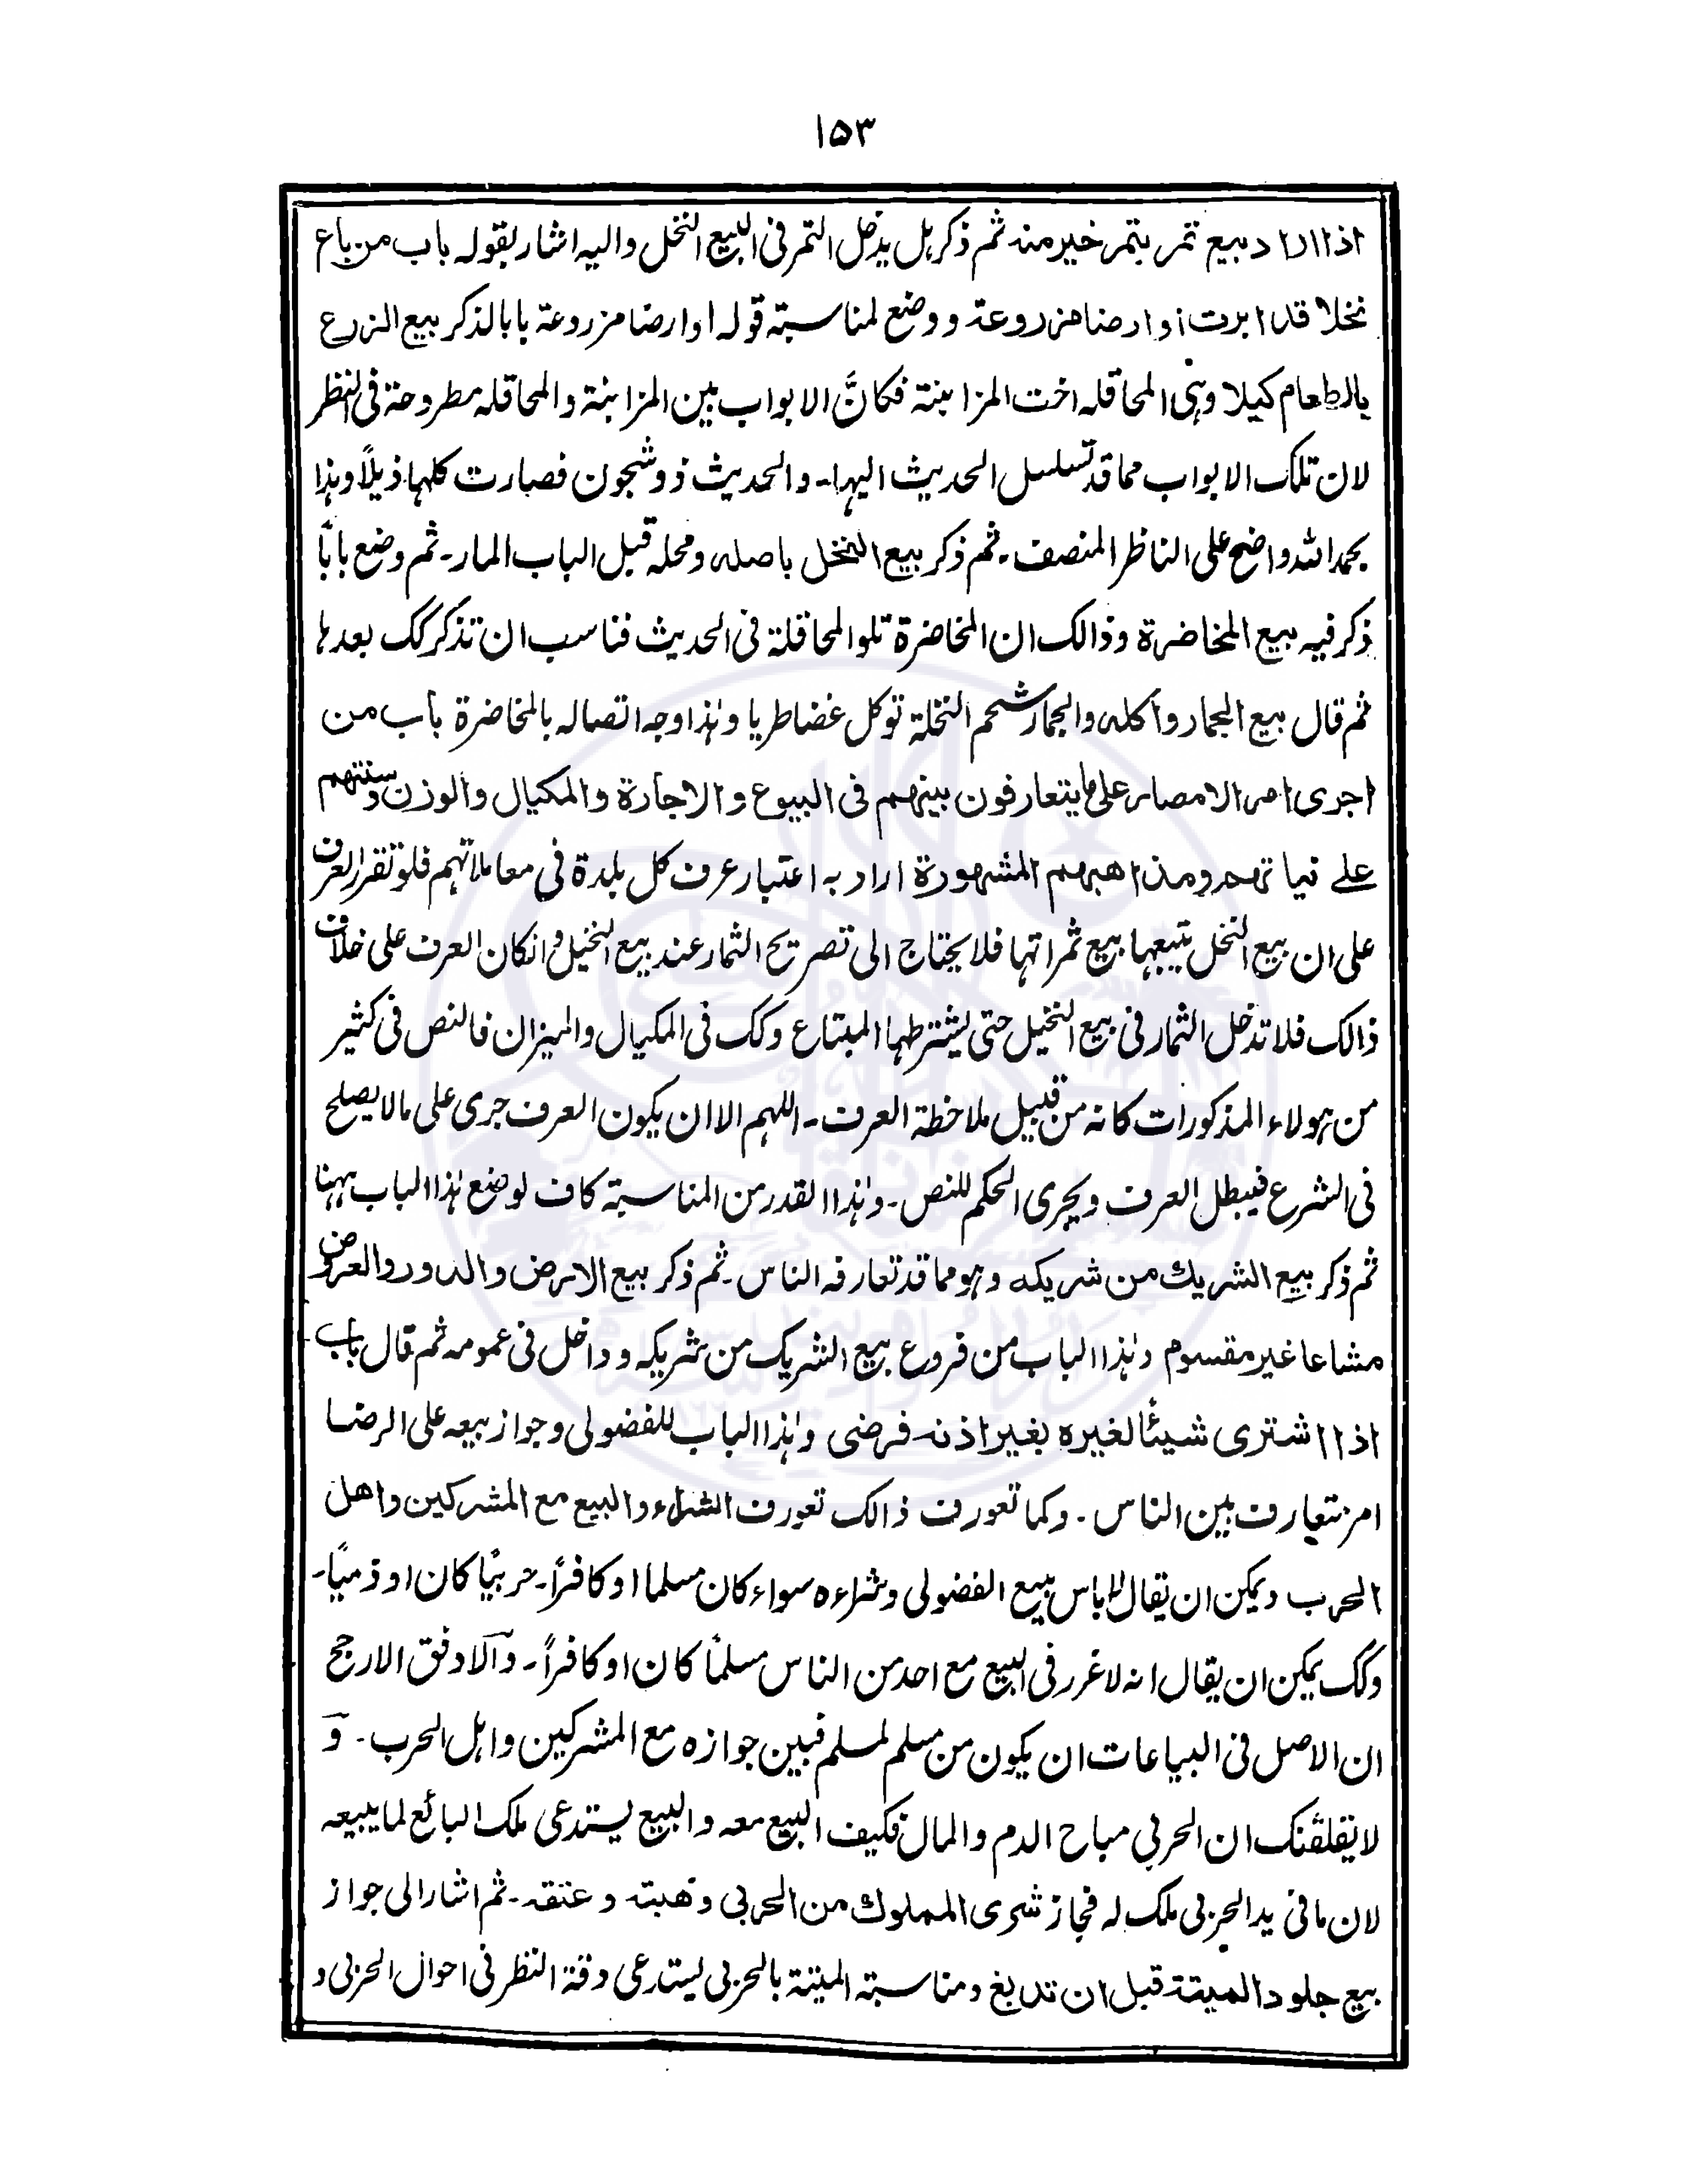 ١٥٣
اذا اراد بيع تمر بتمر خير منه ثم ذكر هل يدخل التمر فى البيع النخل واليه اشار بقوله باب من باع
نخلا قد ابرت أو ارضا مزروعة ووضع لمناسبته قوله او ارضا مزروعة بابا لذكر بيع الزرع
بالطعام كيلا وہى المحاقله اخت المزابنة فكانَّ الابواب بين المزابنة والمحاقله مطروحة فى النظر
لان تلك الابواب مما قد تسلسل الحديث اليها۔ والحديث ذو شجون فصارت كلها ذيلاً وہذا
بحمد الله واضح على الناظر المنصف۔ ثم ذكر بيع النخل باصله ومحله قبل الباب المار۔ ثم وضع بابًا
ذكر فيه بيع المخاضرة وذالك ان المخاضرة تلو المحاقلة فى الحديث فناسب ان تذكر كك بعدہا
ثم قال بيع الجمار وأكله والجمار شحم النخلة توكل غضا طريا وہٰذا وجه اتصاله بالمخاضرة باب من
اجرى امر الامصار على ما يتعارفون بينهم فى البيوع والاجارة والمكيال والوزن وسنتهم
على نياتهم ومذاهبهم المشهورة اراد به اعتبار عرف كل بلدة فى معاملاتهم فلو تقرر العرف
على ان بيع النخل يتبعها بيع ثمراتها فلا يحتاج الى تصريح الثمار عند بيع النخيل وانكان العرف على خلاف
ذالك فلا تدخل الثمار فى بيع النخيل حتى يشترطها المبتاع وكك فى المكيال والميزان فالنص فى كثير
من ہولاء المذكورات كانه من قبيل ملاحظة العرف۔ اللهم الا ان يكون العرف جرى على مالا يصلح
فى الشرع فيبطل العرف ويجرى الحكم للنص۔ وہٰذا القدر من المناسبة كاف لوضع ہٰذا الباب ہہنا
ثم ذكر بيع الشريك من شريكه وہو مما قد تعارفه الناس۔ ثم ذكر بيع الارض والدور والعروض
مشاعا غير مقسوم وہٰذا الباب من فروع بيع الشريك من شريكه وداخل فى عمومه ثم قال باب
اذا اشترى شيئًا لغيره بغير اذنه فرضى وہٰذا الباب للفضولى وجواز بيعه على الرضا
امر متعارف بين الناس۔ وكما تعورف ذالك تعورف الشراء والبيع مع المشركين واهل
الحرب ويمكن ان يقال لا باس ببيع الفضولى وشراءه سواء كان مسلما او كافراً۔ حربيًا كان او ذميًا۔
وكك يمكن ان يقال انه لا غرر فى البيع مع احد من الناس مسلمًا كان او كافراً۔ والاوفق الارجح
ان الاصل فى البياعات ان يكون من مسلم لمسلم فبين جوازه مع المشركين واہل الحرب۔ و
لا يقلقنك ان الحربى مباح الدم والمال فكيف البيع معه والبيع يستدعى ملك البائع لما يبيعه
لان مافى يد الحربى ملك له فجاز شرى المملوك من الحربى وهبته وعتقه۔ ثم اشار الى جواز
بيع جلود الميتة قبل ان تدبغ ومناسبة الميتة بالحربى يسترعى دقة النظر فى احوال الحربى و